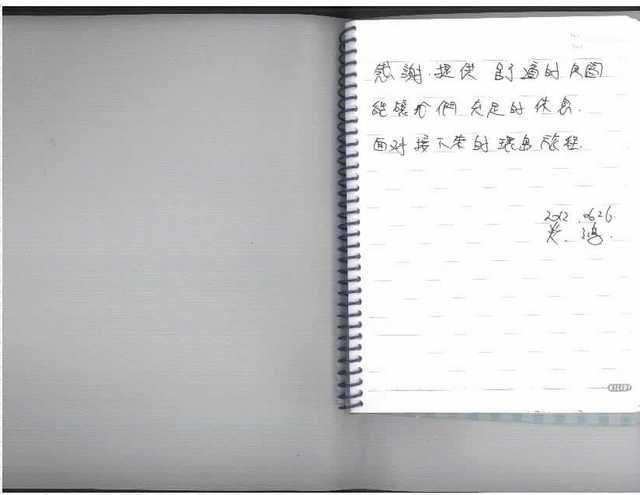 感謝.提供 舒適的民宿
能讓我們 充足的休息.
面對接下來的環島旅程.
2012.0626.